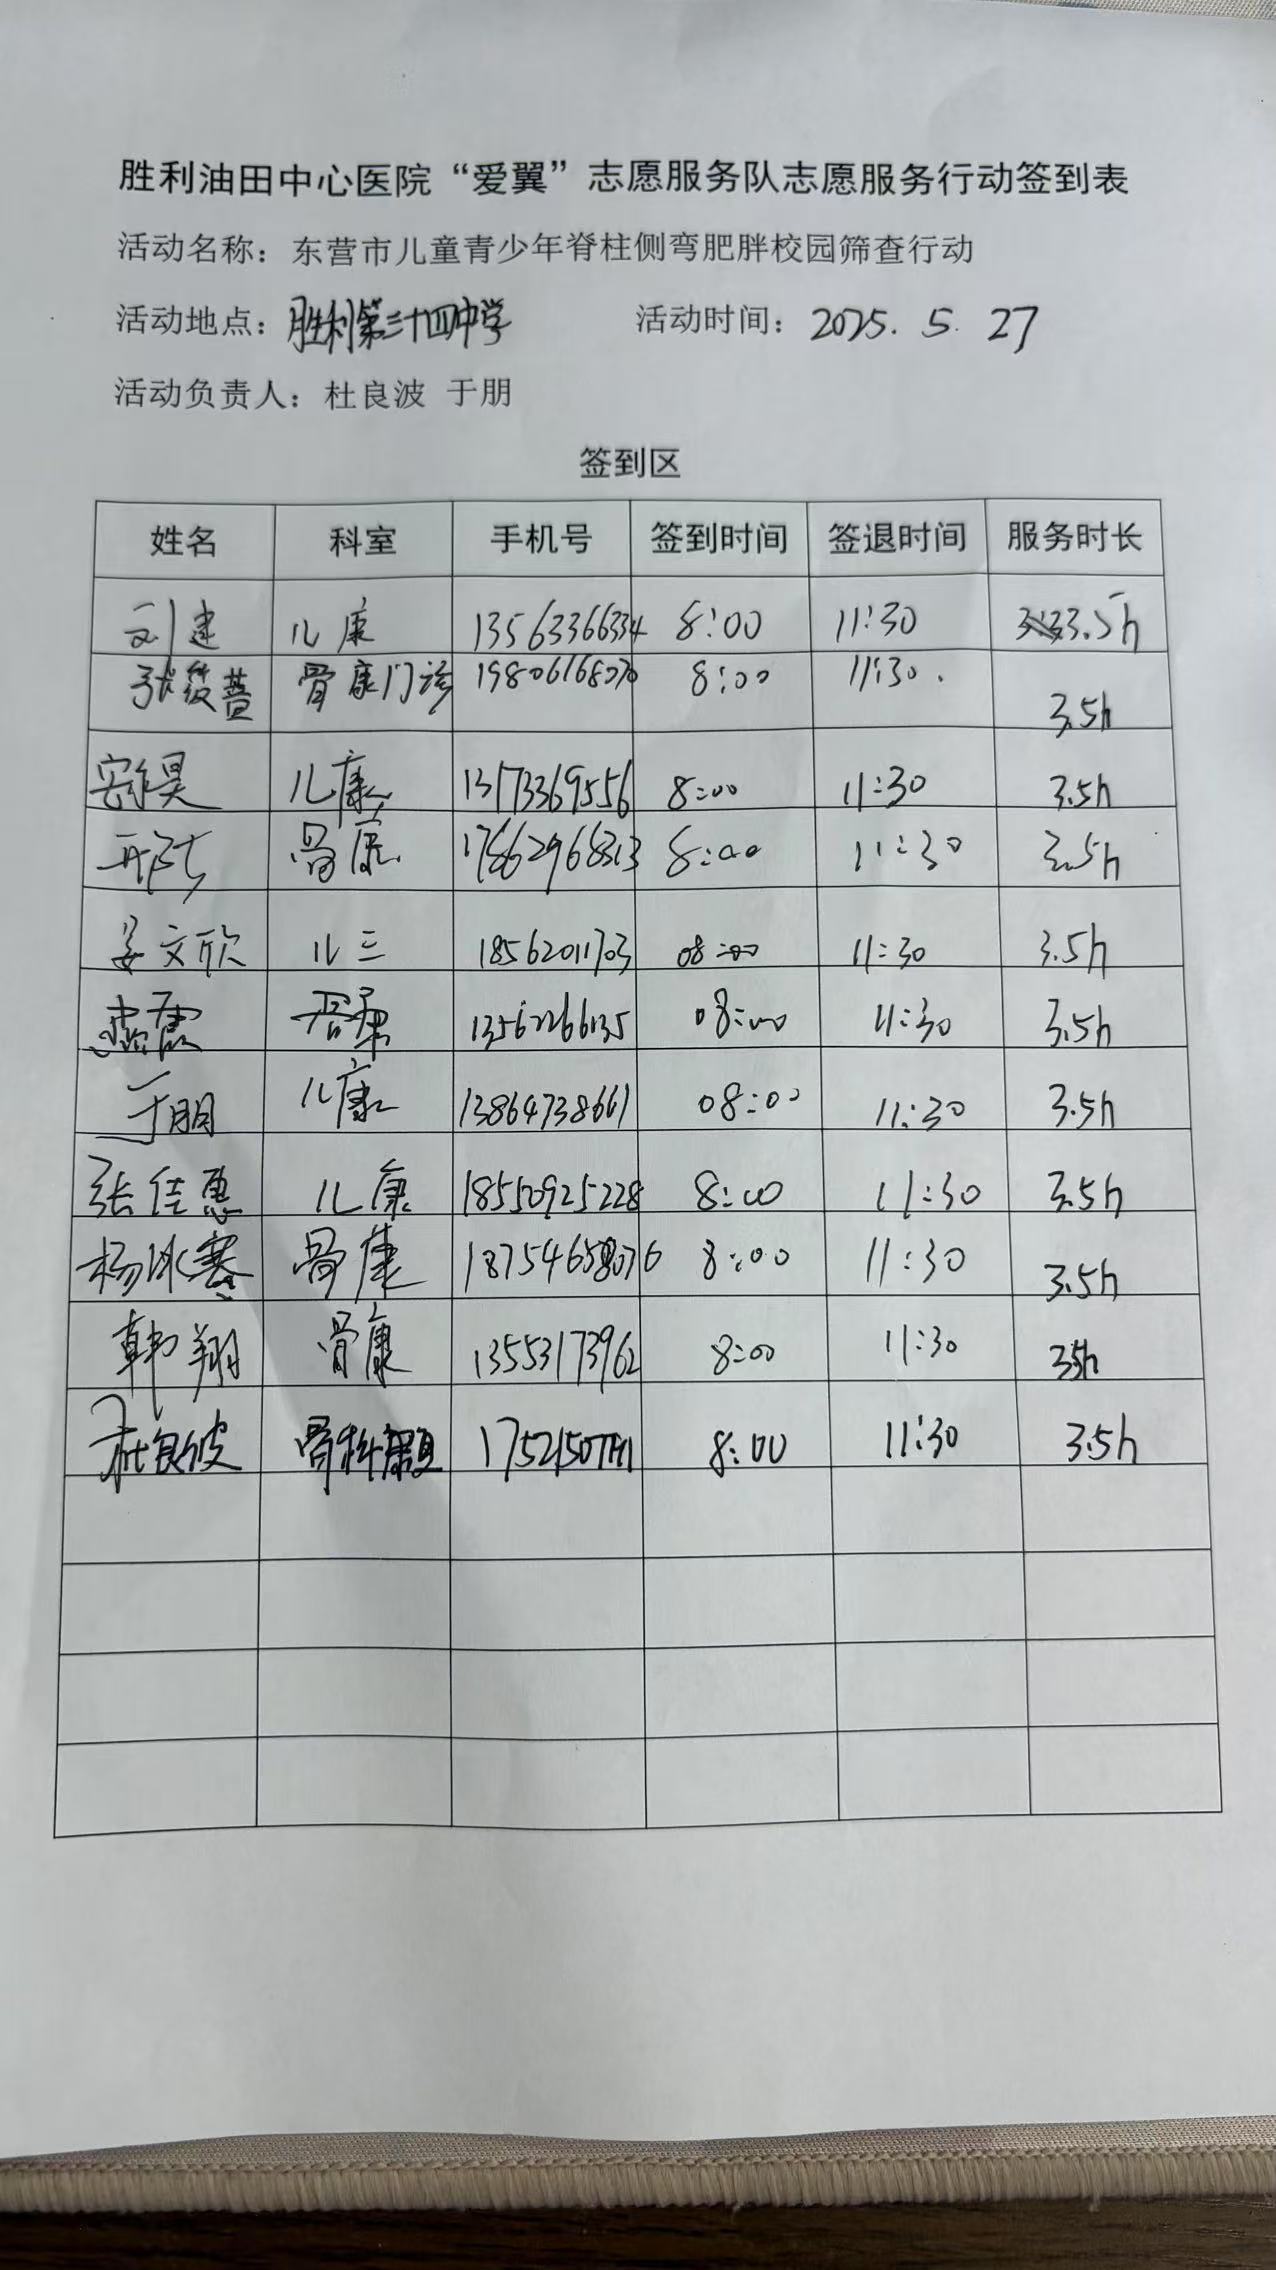 胜利油田中心医院“爱翼”志愿服务队志愿服务行动签到表
活动名称：东营市儿童青少年脊柱侧弯肥胖校园筛查行动
活动地点：胜利第三十四中学 活动时间：2025.5.27
活动负责人：杜良波 于朋
签到区
姓名 科室 手机号 签到时间 签退时间 服务时长
刘建 儿康 13563366334 8:00 11:30 3.5h
张 骨康门诊 19806168070 8:00 11:30. 3.5h
昊 儿康 13173369556 8:00 11:30 3.5h
骨康 17862968313 8:00 11:30 3.5h
姜文欣 儿三 18562011703 08:00 11:30 3.5h
08:00 11:30 3.5h
于朋 儿康 13864738661 08:00 11:30 3.5h
张佳惠 儿康 18550925228 8:00 11:30 3.5h
杨冰 骨康 8:00 11:30 3.5h
韩翔 骨康 13553173962 8:00 11:30 3.5h
杜良波 骨科康复 8:00 11:30 3.5h